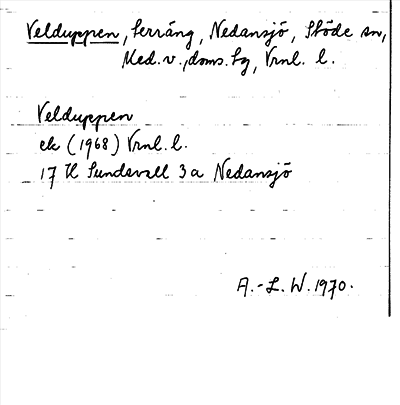 Velduppen, terräng, Nedansjö, Stöde sn,
Med. v., doms. tg, Vrnl. l.
Velduppen
ek (1968) Vrnl. l.
17 H Sundsvall 3 a Nedansjö
A.-L. W. 1970.